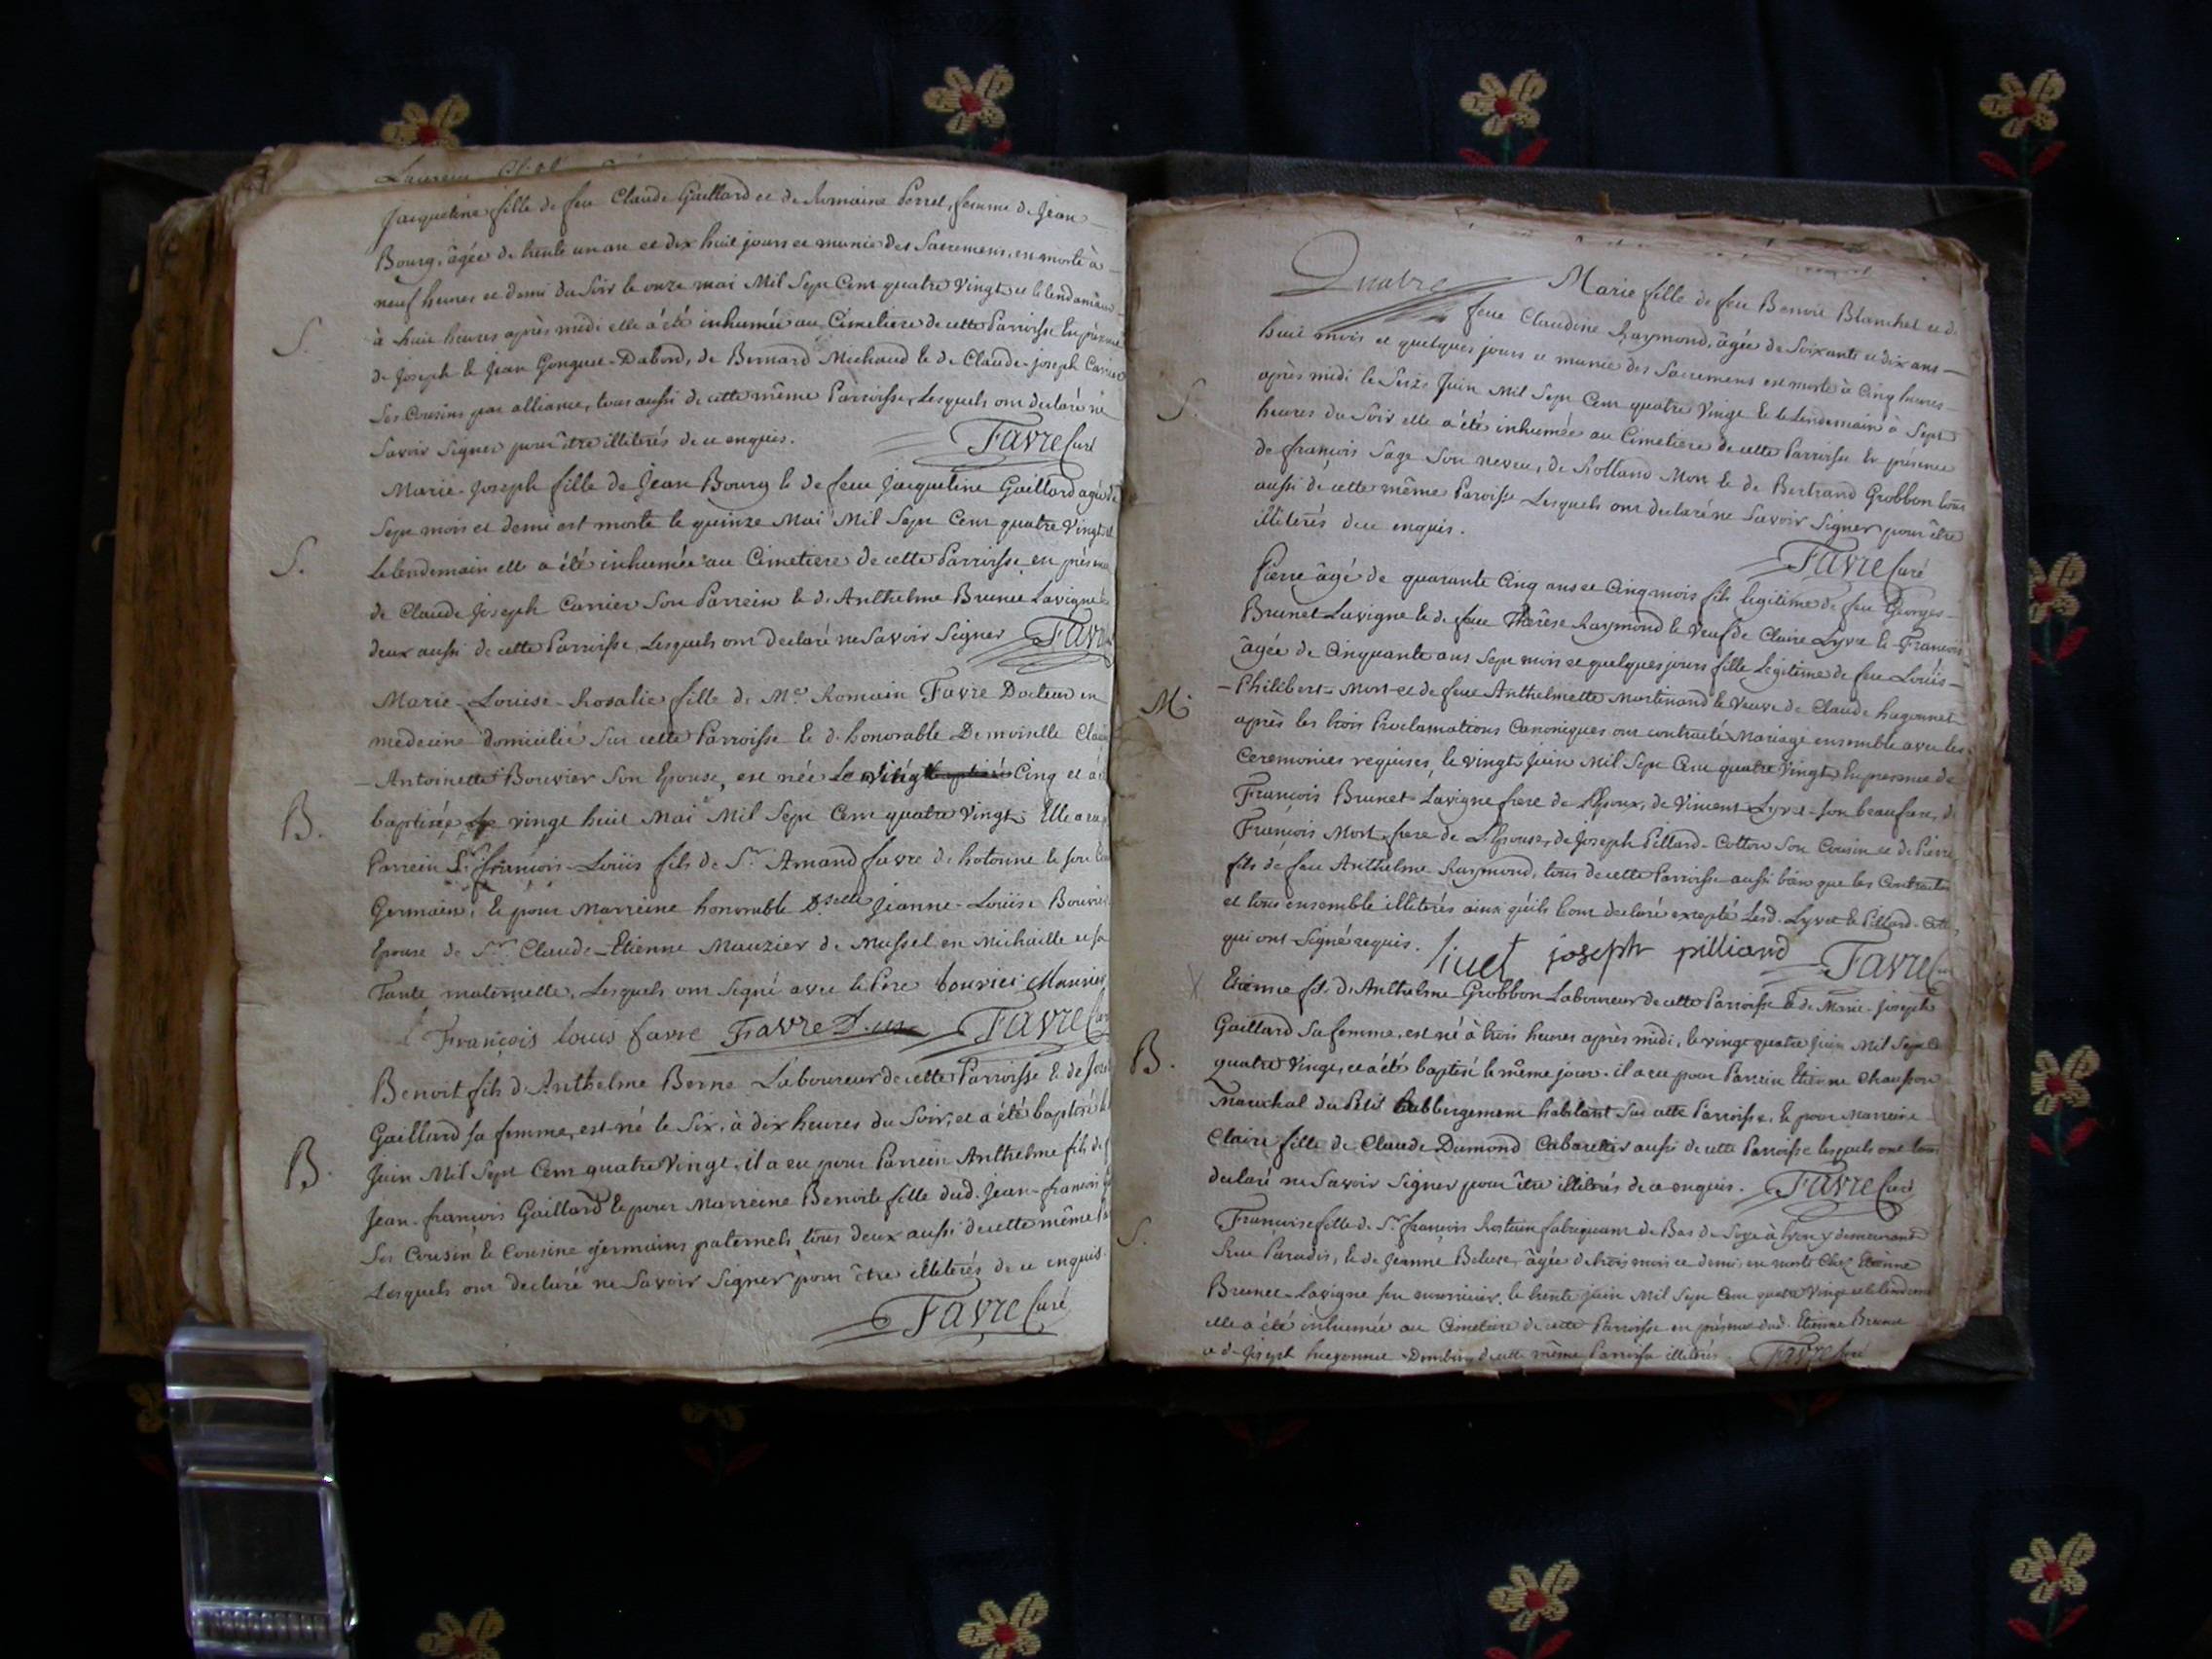 Jacqueline fille de feu Claude Gaillard et de Romaine Perret, femme de Jean
Bourg, âgée de trente un an et dix huit jours et munie des Sacremens, est morte à
neuf heures et demi du Soir le onze mai Mil Sept Cent quatre Vingt et le lendemain
S.
à huit heures après midi elle a été inhumée au Cimetiere de cette Parroisse En présence
de Joseph & Jean Gonguet-Dabord, de Bernard Michaud & de Claude-joseph Carrier
Ses Cousins par alliance, tous aussi de cette même Parroisse, Lesquels ont declaré ne
Savoir Signer pour être illiterés de ce enquis. Favre Curé
Marie-Joseph fille de Jean Bourg & de feue Jacqueline Gaillard agée de
Sept mois et demi est morte le quinze Mai Mil Sept Cent quatre Vingt et
S.
le lendemain elle a été inhumée au Cimetiere de cette Parroisse en présence
de Claude Joseph Carrier Son Parrein & d'Anthelme Brunet Lavigne
deux aussi de cette Parroisse, Lesquels ont declaré ne Savoir Signer Favre
Marie-Louise-Rosalie fille de Mr. Romain Favre Docteur en
medecine domicilié Sur cette Parroisse & d. honorable Demoiselle
Antoinette Bouvier Son Epouse, est née Le vingt Cinq et a été
B.
baptisée le vingt huit Mai Mil Sept Cent quatre Vingt. Elle a eu
Parrein Sr. françois-Louis fils de Sr. Amand favre de hotonne & son
Germain, & pour Marreine honorable D.selle Jeanne-Louise Bouvier
Epouse de Sr. Claude-Etienne Mauzier de Mussel en Michaille et sa
Tante maternelle, Lesquels ont Signé avec le Pere bouvier
François louis favre Favre Favre
Benoit fils d'Anthelme Berne Laboureur de cette Parroisse & de
Gaillard sa femme, est né le Six, à dix heures du Soir, et a été baptisé le
B.
Juin Mil Sept Cent quatre Vingt, il a eu pour Parrein Anthelme fils de
Jean-françois Gaillard & pour Marreine Benoite fille dud. Jean-francois
Ses Cousin & Cousine germains paternels, tous deux aussi de cette même
Lesquels ont declaré ne Savoir Signer pour être illiterés de ce enquis.
Favre Curé
Quatre Marie fille de feu Benoit Blanchet et de
feue Claudine Raymond, âgée de Soixante et dix ans
huit mois et quelques jours et munie des Sacremens est morte à Cinq heures
après midi le Seize Juin Mil Sept Cent quatre Vingt & le lendemain à Sept
S.
heures du Soir elle a été inhumée au Cimetiere de cette Parroisse En présence
de françois Sage Son neveu, de Rolland Mort & de Bertrand Grobbon tous
aussi de cette même Paroisse Lesquels ont declaré ne Savoir Signer pour être
illiterés de ce enquis.
Favre Curé
Pierre âgé de quarante Cinq ans et Cinq mois fils legitime de feu Georges
Brunet-Lavigne & de feue Thérèse Raymond & Veuf de Claire Lyvet & Françoise
âgée de Cinquante ans Sept mois et quelques jours fille Legitime de feu Louis
M.
Philibert-Mort et de feue Anthelmette Martinand & Veuve de Claude hugonnet
après les trois Proclamations Canoniques ont contracté Mariage ensemble avec les
Ceremonies requises, le vingt Juin Mil Sept Cent quatre Vingt En présence de
François Brunet-Lavigne frere de l'Epoux, de Vincent Lyvet son beaufrere, de
François Mort frere de L'Epouse, de Joseph Pillard-Cotton Son Cousin et de Pierre
fils de feu Anthelme Raymond, tous de cette Parroisse aussi bien que les Contractans
et tous ensemble illiterés ainsi qu'ils l'ont declaré excepté Lesd. Lyvet & Pillard-Cotton
qui ont Signé requis. liuet joseph pilliard Favre Curé
Etienne fils d'Anthelme Grobbon Laboureur de cette Parroisse & de Marie-joseph
Gaillard Sa femme, est né à trois heures après midi, le vingt quatre juin Mil Sept Cent
B.
quatre Vingt, et a été baptisé le même jour. il a eu pour Parrein Etienne Chausson
Marechal du Petit habbergement habitant Sur cette Parroisse, & pour Marreine
Claire fille de Claude Dumond Cabaretier aussi de cette Parroisse lesquels ont tous
declaré ne Savoir Signer pour être illiterés de ce enquis. Favre Curé
S.
Françoise fille de Sr. françois Rostain fabriquant de Bas de Soye à Lyon y demeurant
Rue Paradis, & de Jeanne Beluze, âgée de trois mois et demi, est morte Chez Etienne
Brunet-Lavigne son nourricier, le trente juin Mil Sept Cent quatre Vingt et le lendemain
elle a été inhumée au Cimetiere de cette Parroisse en présence dud. Etienne Brunet
et de Joseph hugonnet de cette même Parroisse illiterés. Favre Curé